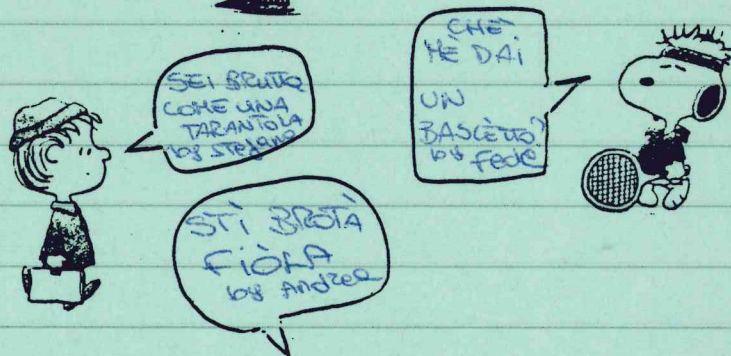 SEI BRUTTO
COME UNA
TARANTOLA
by Stefano
CHE
ME DAI
UN
BASCÈTTO?
by Fede
STÌ BROTÀ
FIÒLA
by Andrea